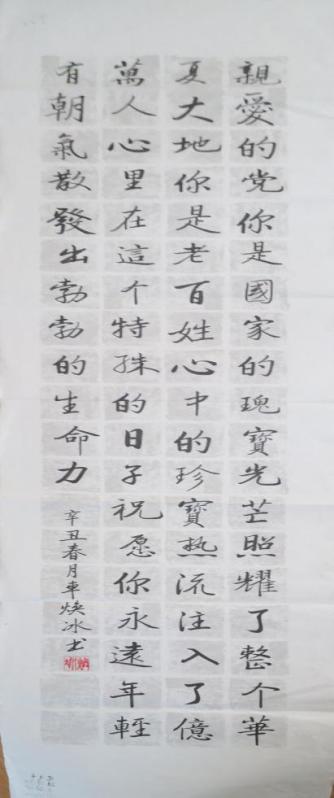 親愛的党你是國家的瑰寶光芒照耀了整个華
夏大地你是老百姓心中的珍寶热流注入了億
萬人心里在這个特殊的日子祝愿你永遠年輕
有朝氣散發出勃勃的生命力
辛丑春月車焕冰书